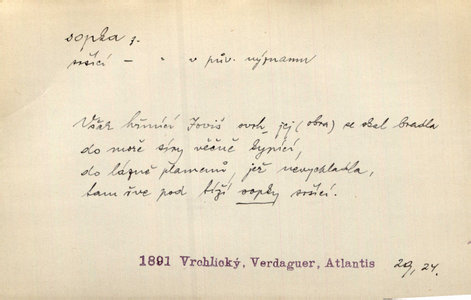 sopka f.
sršící – " v pův. významu
Však hřmící Joviš svrh jej (obra) se skal bradla
do moře síry věčně kypící,
do lázně plamenů, jež nevychladla,
tam řve pod tíží sopky sršící.
1891 Vrchlický, Verdaguer, Atlantis 29, 24.